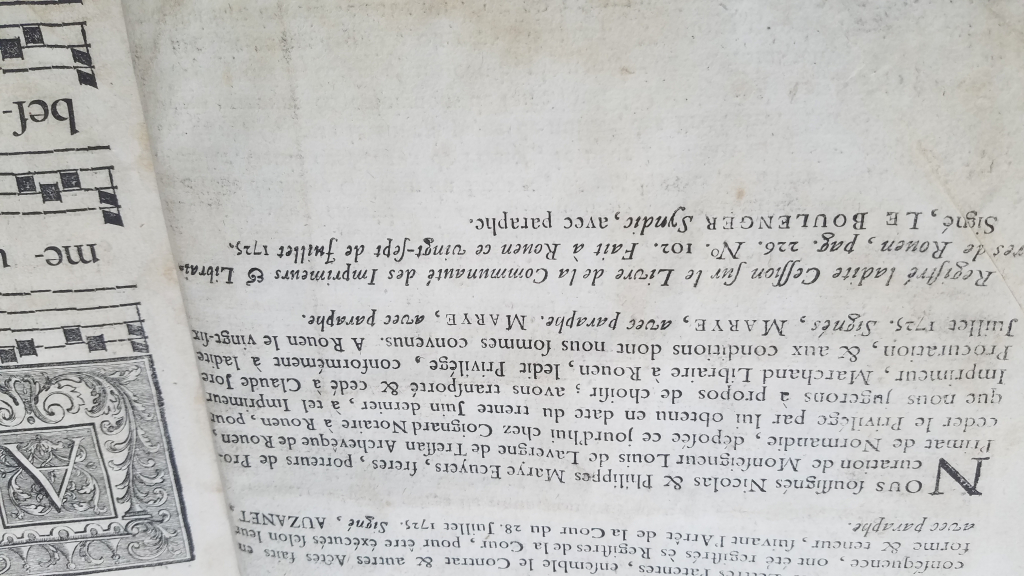 Lettres Patentes, ensemble le Contrat & autres Actes faits en
conséquence, ont été regiſtrés ès Regiſtres de la Cour, pour être éxécutés ſelon leur
forme & teneur, ſuivant l'Arrêt de la Cour du 28. Juillet 1725. Signé, AUZANET,
avec paraphe.
NOUS ſouſſignés Nicolas & Philippes Marye Ecuyers, freres, porteurs de Pro-
curation de Monſeigneur Louis de Lavergne de Treſſan Archevêque de Rouen,
Primat de Normandie, dépoſée ce jourd'hui chez Coignard Notaire à Rouen, pour
ceder le Privilége par lui obtenu en date du trente Juin dernier, à tel Imprimeur
que nous jugerons à propos de choiſir; avons tranſporté & cédé à Claude Jore
Imprimeur, Marchand Libraire a Rouen, ledit Privilége, conformément à ladite
Procuration, & aux conditions dont nous ſommes convenus. A Rouen le vingt-ſix
Juillet 1725. Signés, MARYE, avec paraphe. MARYE, avec paraphe.
Regiſtré ladite Ceſſion ſur le Livre de la Communauté des Imprimeurs & Librai-
res de Rouen, pag. 226. Nº. 102. Fait à Rouen ce vingt-ſept de Juillet 1725.
Signé, LE BOULENGER Syndic, avec paraphe.
A
me-
beſ-